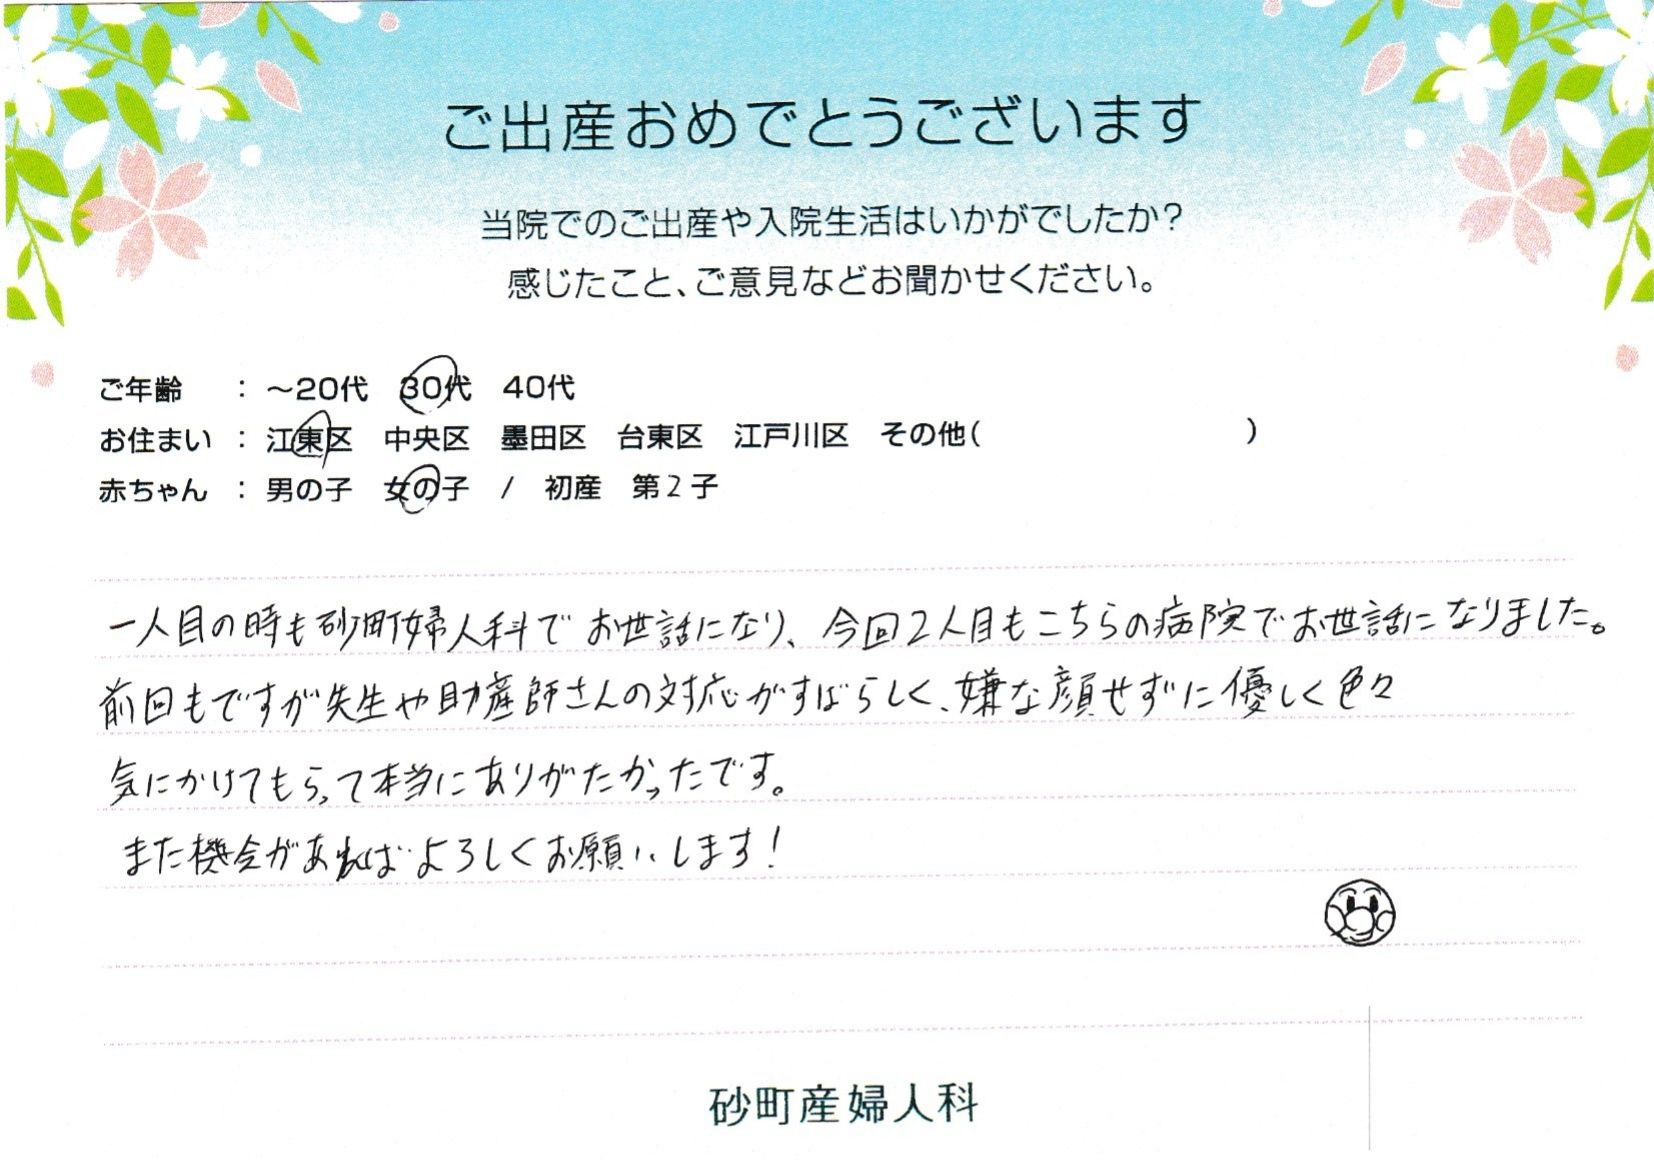 ご出産おめでとうございます
当院でのご出産や入院生活はいかがでしたか?
感じたこと、ご意見などお聞かせください。
ご年齢 : ~20代 30代 40代
お住まい : 江東区 中央区 墨田区 台東区 江戸川区 その他( )
赤ちゃん : 男の子 女の子 / 初産 第2子
一人目の時も砂町婦人科でお世話になり、今回2人目もこちらの病院でお世話になりました。
前回もですが先生や助産師さんの対応がすばらしく、嫌な顔せずに優しく色々
気にかけてもらって本当にありがたかったです。
また機会があればよろしくお願いします!
砂町産婦人科